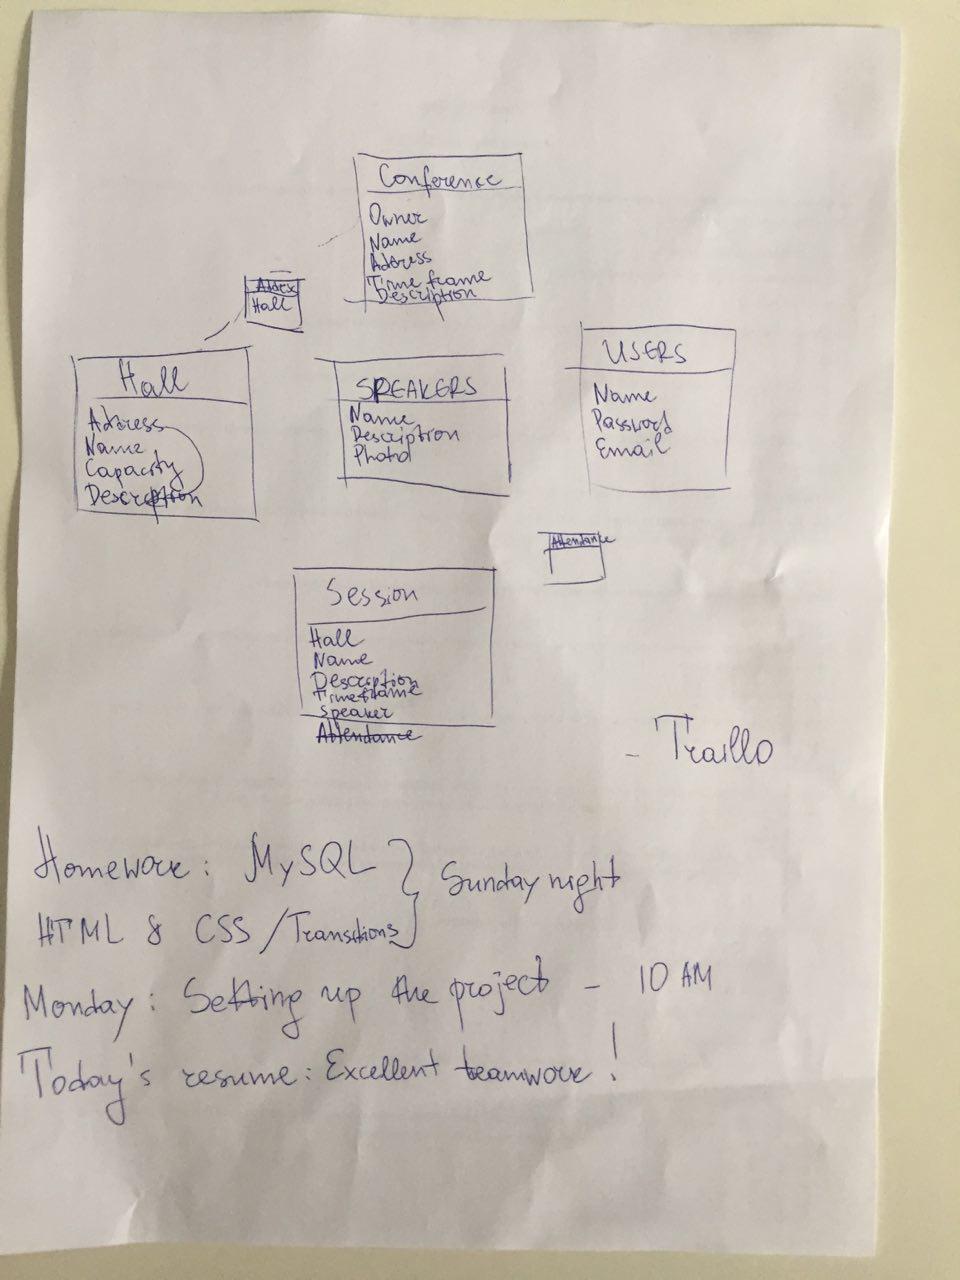 Conference
Owner
Name
Address
Time frame
Description
Hall
Hall
Address
Name
Capacity
Description
SPEAKERS
Name
Description
Photo
USERS
Name
Password
Email
Attendance
Session
Hall
Name
Description
Timeframe
Speaker
Attendance
- Traillo
Homework: MySQL } Sunday night
HTML & CSS / Transitions
Monday: Setting up the project - 10 AM
Today's resume: Excellent teamwork!